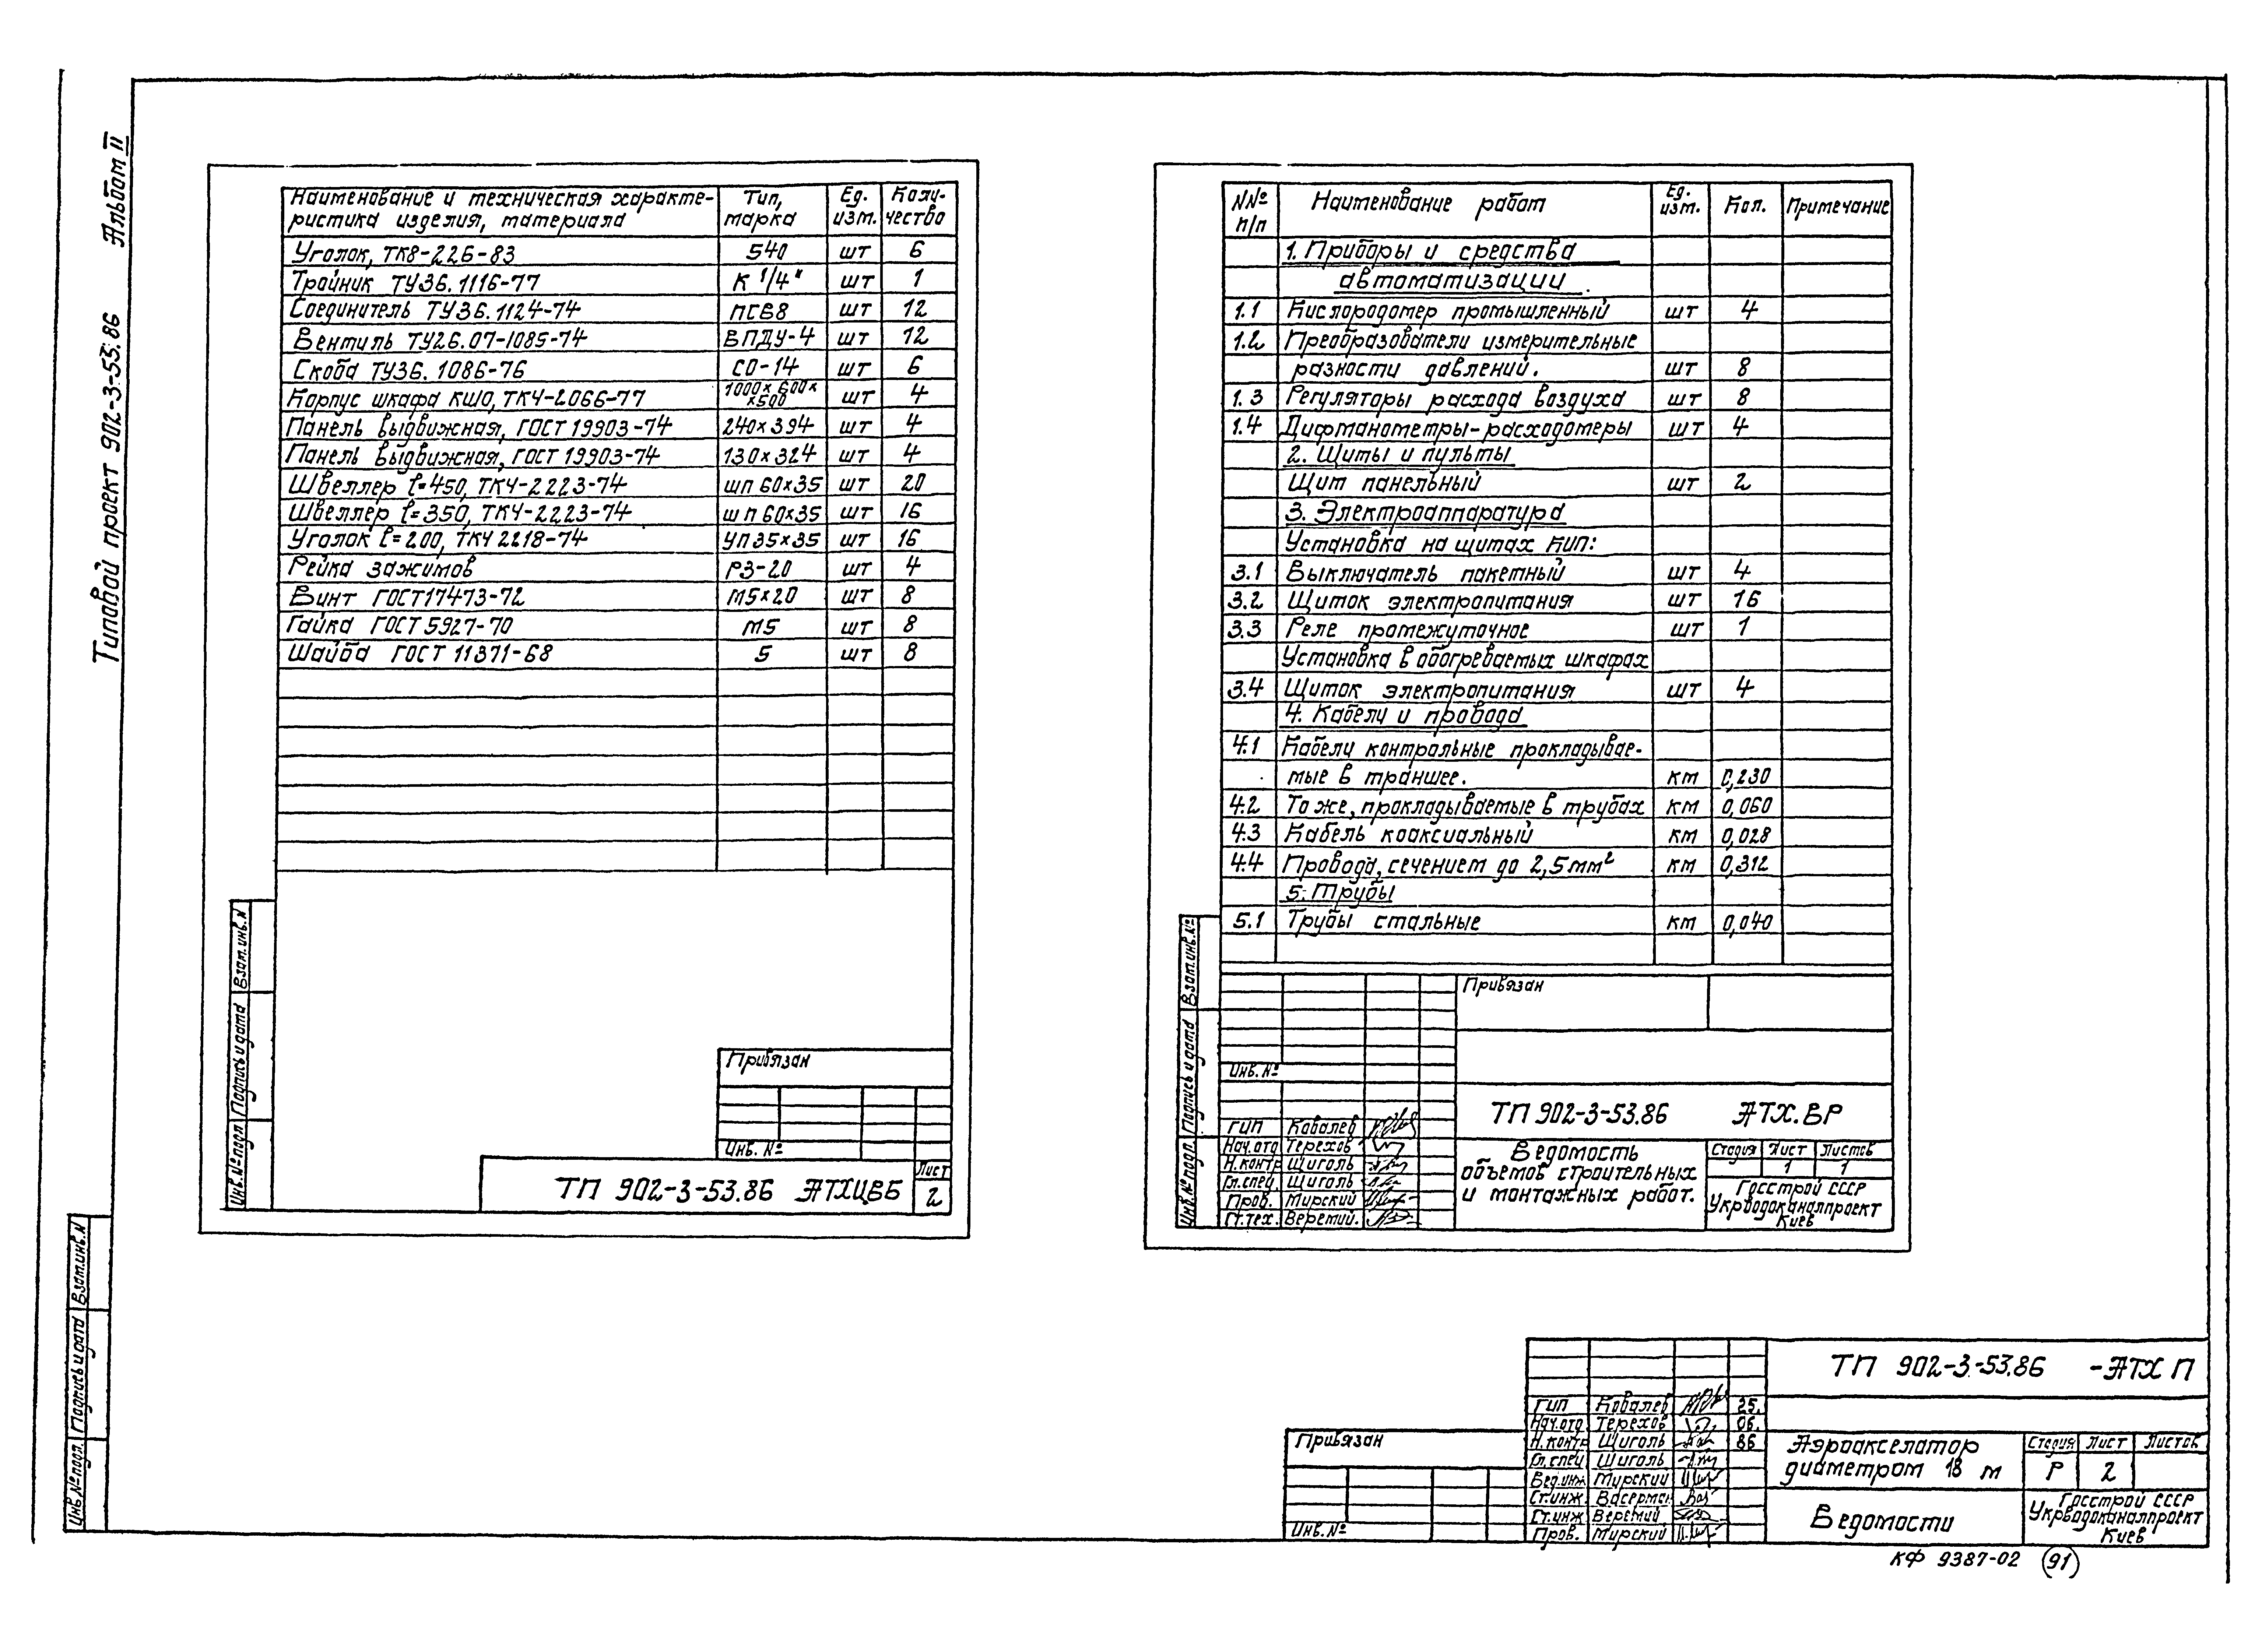 Типовой проект 902-3-53.86 Альбом II
Наименование и техническая характе-
ристика изделия, материала
Тип,
марка
Ед.
изм.
Коли-
чество
Уголок, ТК8-226-83 540 шт 6
Тройник ТУ36.1116-77 К 1/4" шт 1
Соединитель ТУ36.1124-74 ПСВ8 шт 12
Вентиль ТУ26.07-1085-74 ВПДУ-4 шт 12
Скоба ТУ36.1086-76 СО-14 шт 6
Корпус шкафа КШО, ТК4-2066-77 1000×600××500 шт 4
Панель выдвижная, ГОСТ 19903-74 240×394 шт 4
Панель выдвижная, ГОСТ 19903-74 130×324 шт 4
Швеллер ℓ=450, ТК4-2223-74 шп 60×35 шт 20
Швеллер ℓ=350, ТК4-2223-74 шп 60×35 шт 16
Уголок ℓ=200, ТК4 2218-74 УП35×35 шт 16
Рейка зажимов РЗ-20 шт 4
Винт ГОСТ17473-72 М5×20 шт 8
Гайка ГОСТ 5927-70 М5 шт 8
Шайба ГОСТ 11371-68 5 шт 8
Взам.инв.N
Подпись и дата
Инв.№подл
Привязан
Инв. №
ТП 902-3-53.86 АТХЦВБ
Лист
2
N№
п/п
Наименование работ
Ед.
изм.
Кол.
Примечание
1. Приборы и средства
автоматизации.
1.1 Кислородомер промышленный шт 4
1.2 Преобразователи измерительные
разности давлений. шт 8
1.3 Регуляторы расхода воздуха шт 8
1.4 Дифманометры-расходомеры шт 4
2. Щиты и пульты
Щит панельный шт 2
3. Электроаппаратура
Установка на щитах КИП:
3.1 Выключатель пакетный шт 4
3.2 Щиток электропитания шт 16
3.3 Реле промежуточное шт 1
Установка в обогреваемых шкафах
3.4 Щиток электропитания шт 4
4. Кабели и провода
4.1 Кабели контрольные прокладывае-
мые в траншее. км 0,230
4.2 То же, прокладываемые в трубах км 0,060
4.3 Кабель коаксиальный км 0,028
4.4 Провода, сечением до 2,5 мм² км 0,312
5. Трубы
5.1 Трубы стальные км 0,040
Взам.инв.№
Подпись и дата
Инв.№подл.
Привязан
Инв. №
ТП 902-3-53.86 АТХ.ВР
ГИП Ковалев
Нач.отд Терехов
Н.контр Щиголь
Гл.спец. Щиголь
Пров. Мирский
Ст.тех. Веремий.
Ведомость
объемов строительных
и монтажных работ.
Стадия Лист Листов
1 1
Госстрой СССР
Укрводоканалпроект
Киев
Взам.инв.N
Подпись и дата
Инв.№подл.
Привязан
Инв.№
ТП 902-3-53.86 -АТХ П
ГИП Ковалев 25.
Нач.отд Терехов 06.
Н.контр Щиголь 86
Гл.спец Щиголь
Вед.инж Мирский
Ст.инж. Васерман
Ст.инж Веремий
Пров. Мирский
Аэроакселатор
диаметром 18 м
Стадия Лист Листов
Р 2
Ведомости
Госстрой СССР
Укрводоканалпроект
Киев
КФ 9387-02 (91)